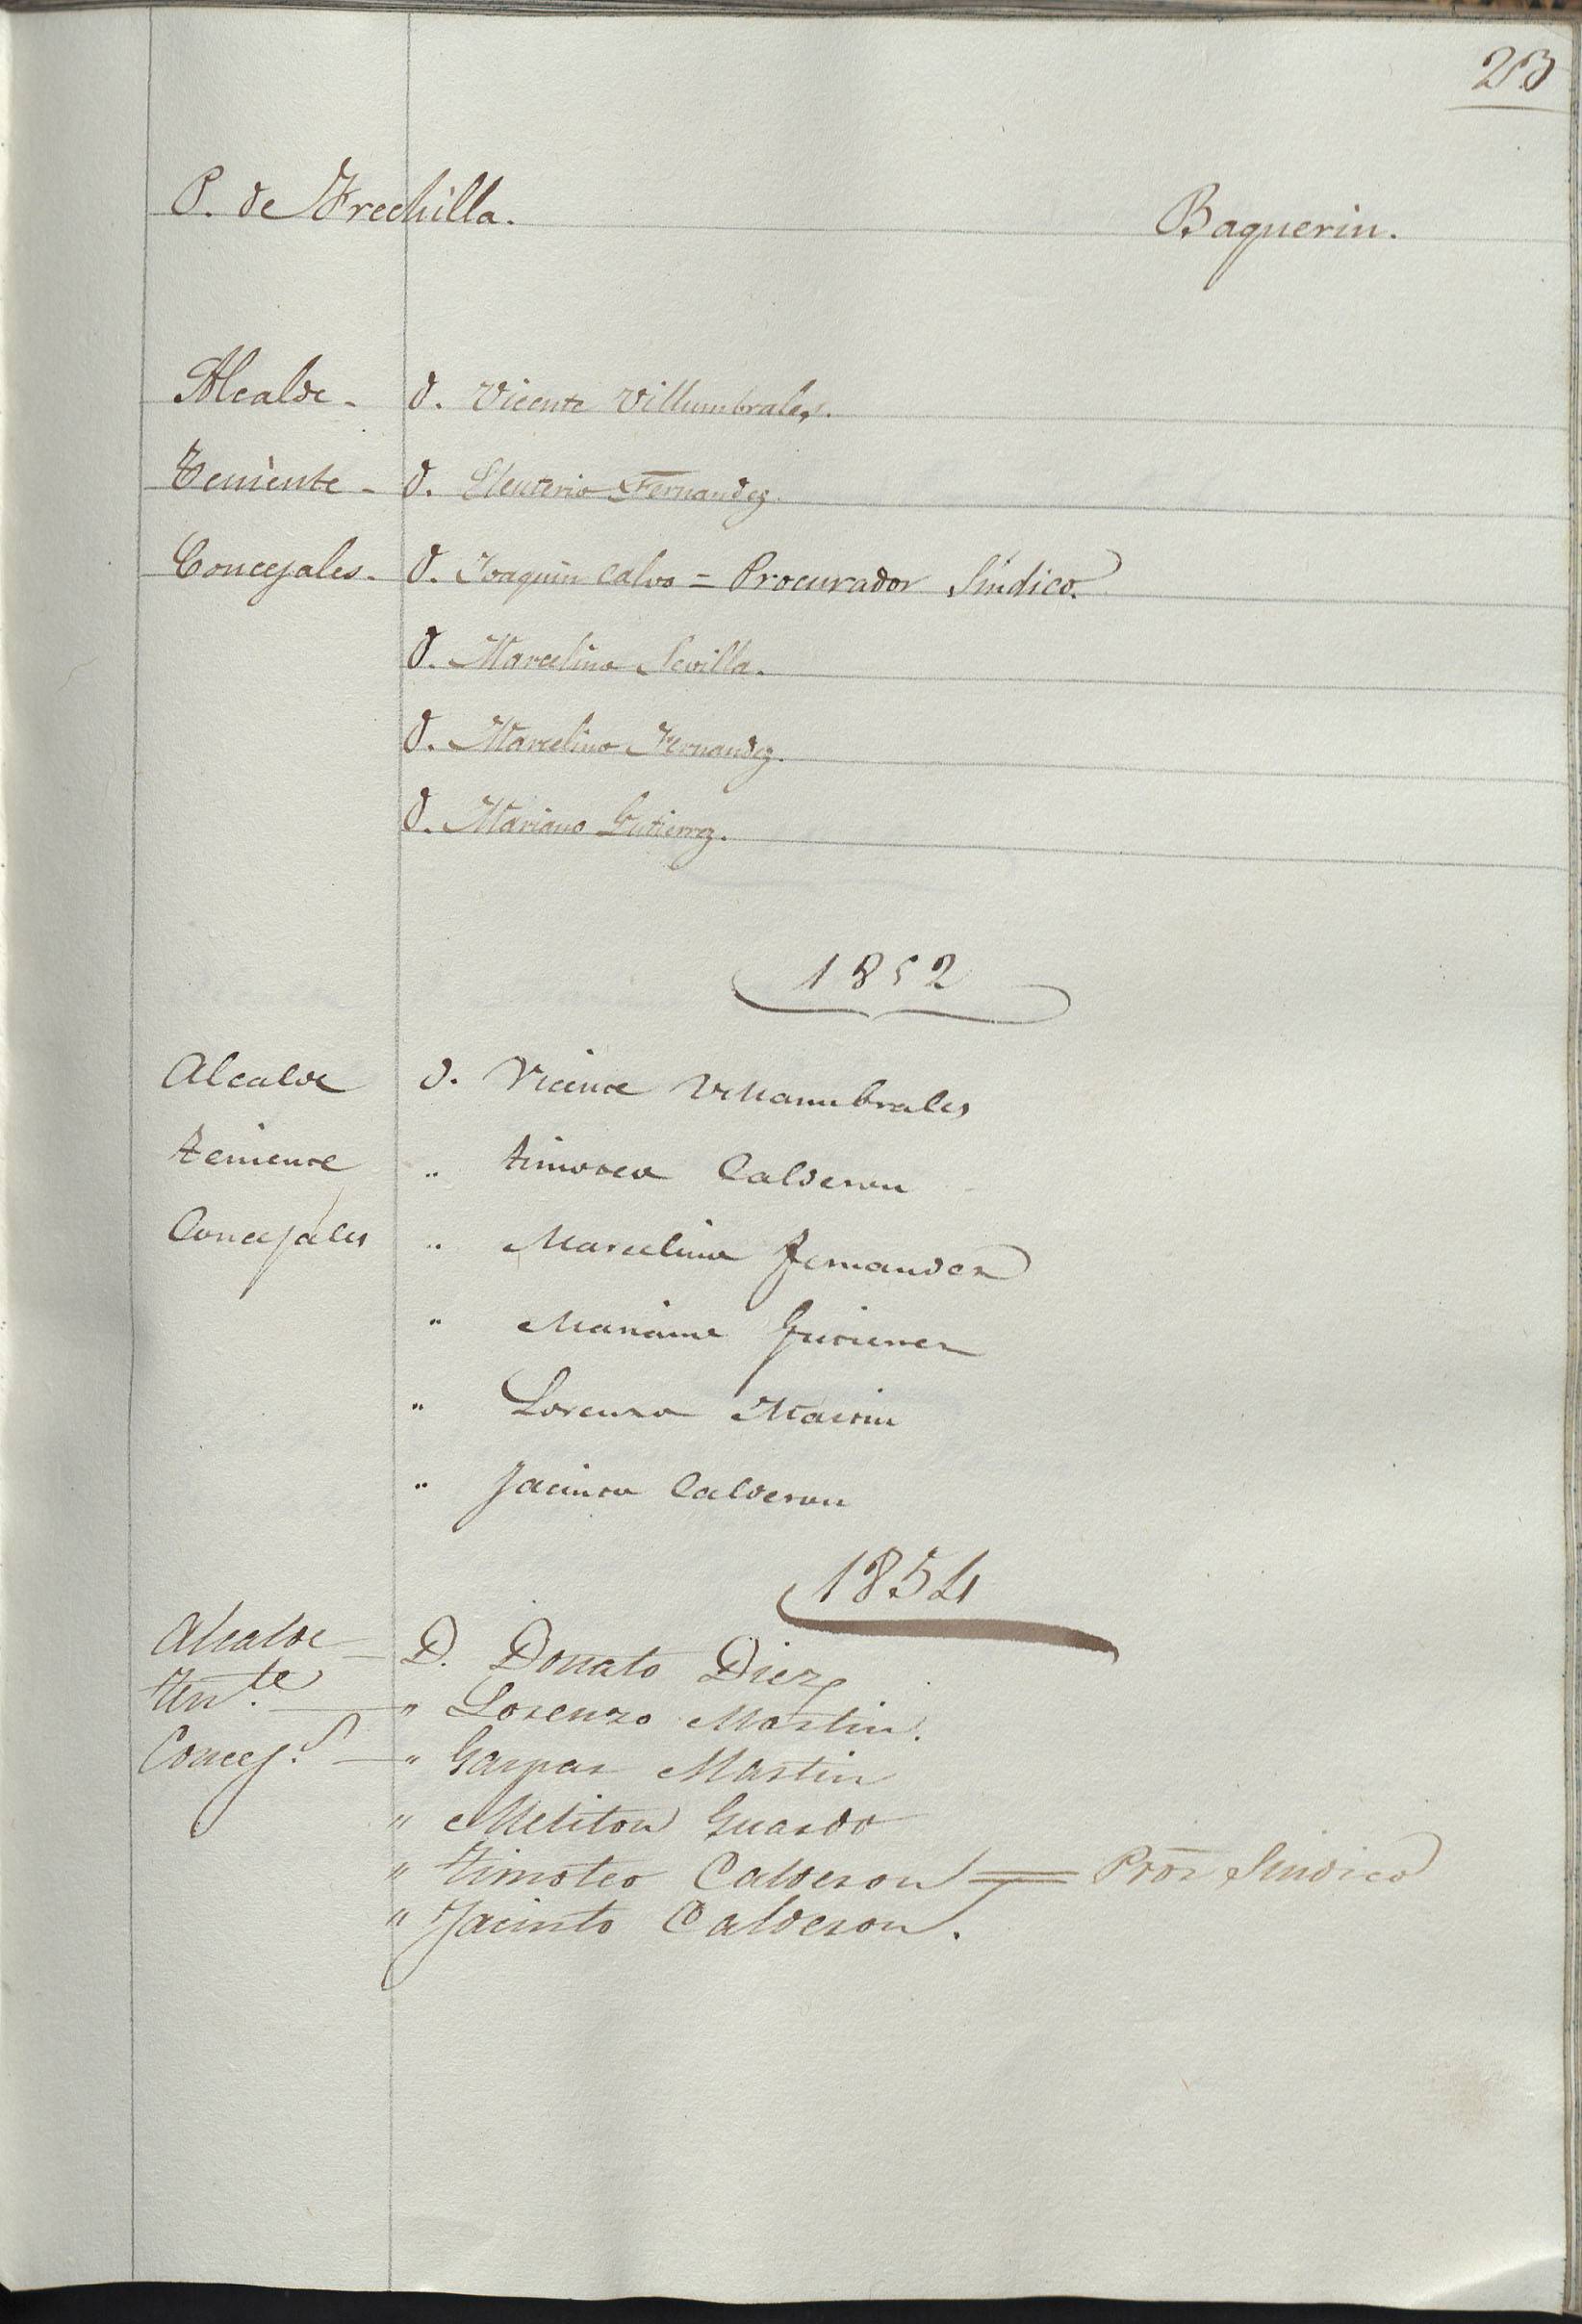 23
P. de Frechilla. Baquerin.
Alcalde - D. Vicente Villumbrales.
Teniente - D. Eleuterio Fernandez.
Concejales. D. Joaquin Calvo = Procurador Sindico.
D. Marcelino Sevilla.
D. Marcelino Fernandez.
D. Mariano Gutierrez.
1852
Alcalde D. Vicente Villanubrales
teniente " timoteo Calderon
Concejales " Marcelino Fernandez
" Mariano Gutierrez
" Lorenzo Martin
" Jacinto Calderon
1854
Alcalde - D. Donato Diez
ten.te - " Lorenzo Martin.
Concej.s - " Gaspar Martin
" Meliton Guardo
" timoteo Calderon = Pror Sindico
" Jacinto Calderon.